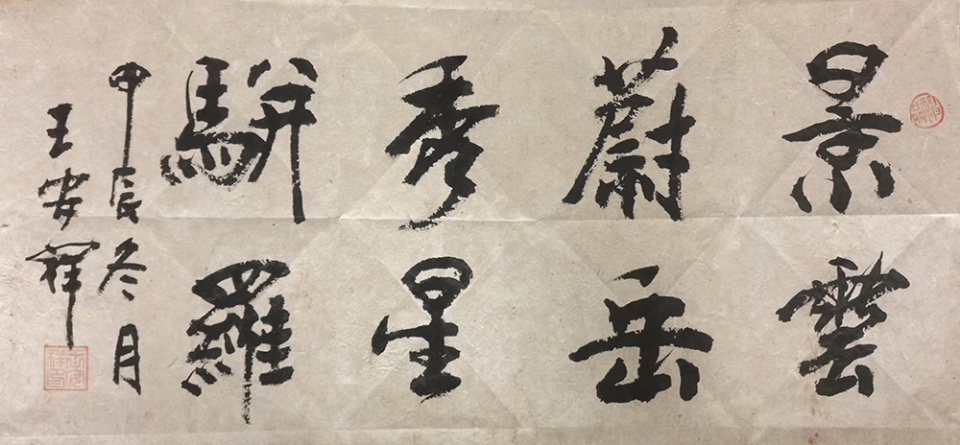 景雲
蔚岳
秀星
駢羅
甲辰冬月
王安祥